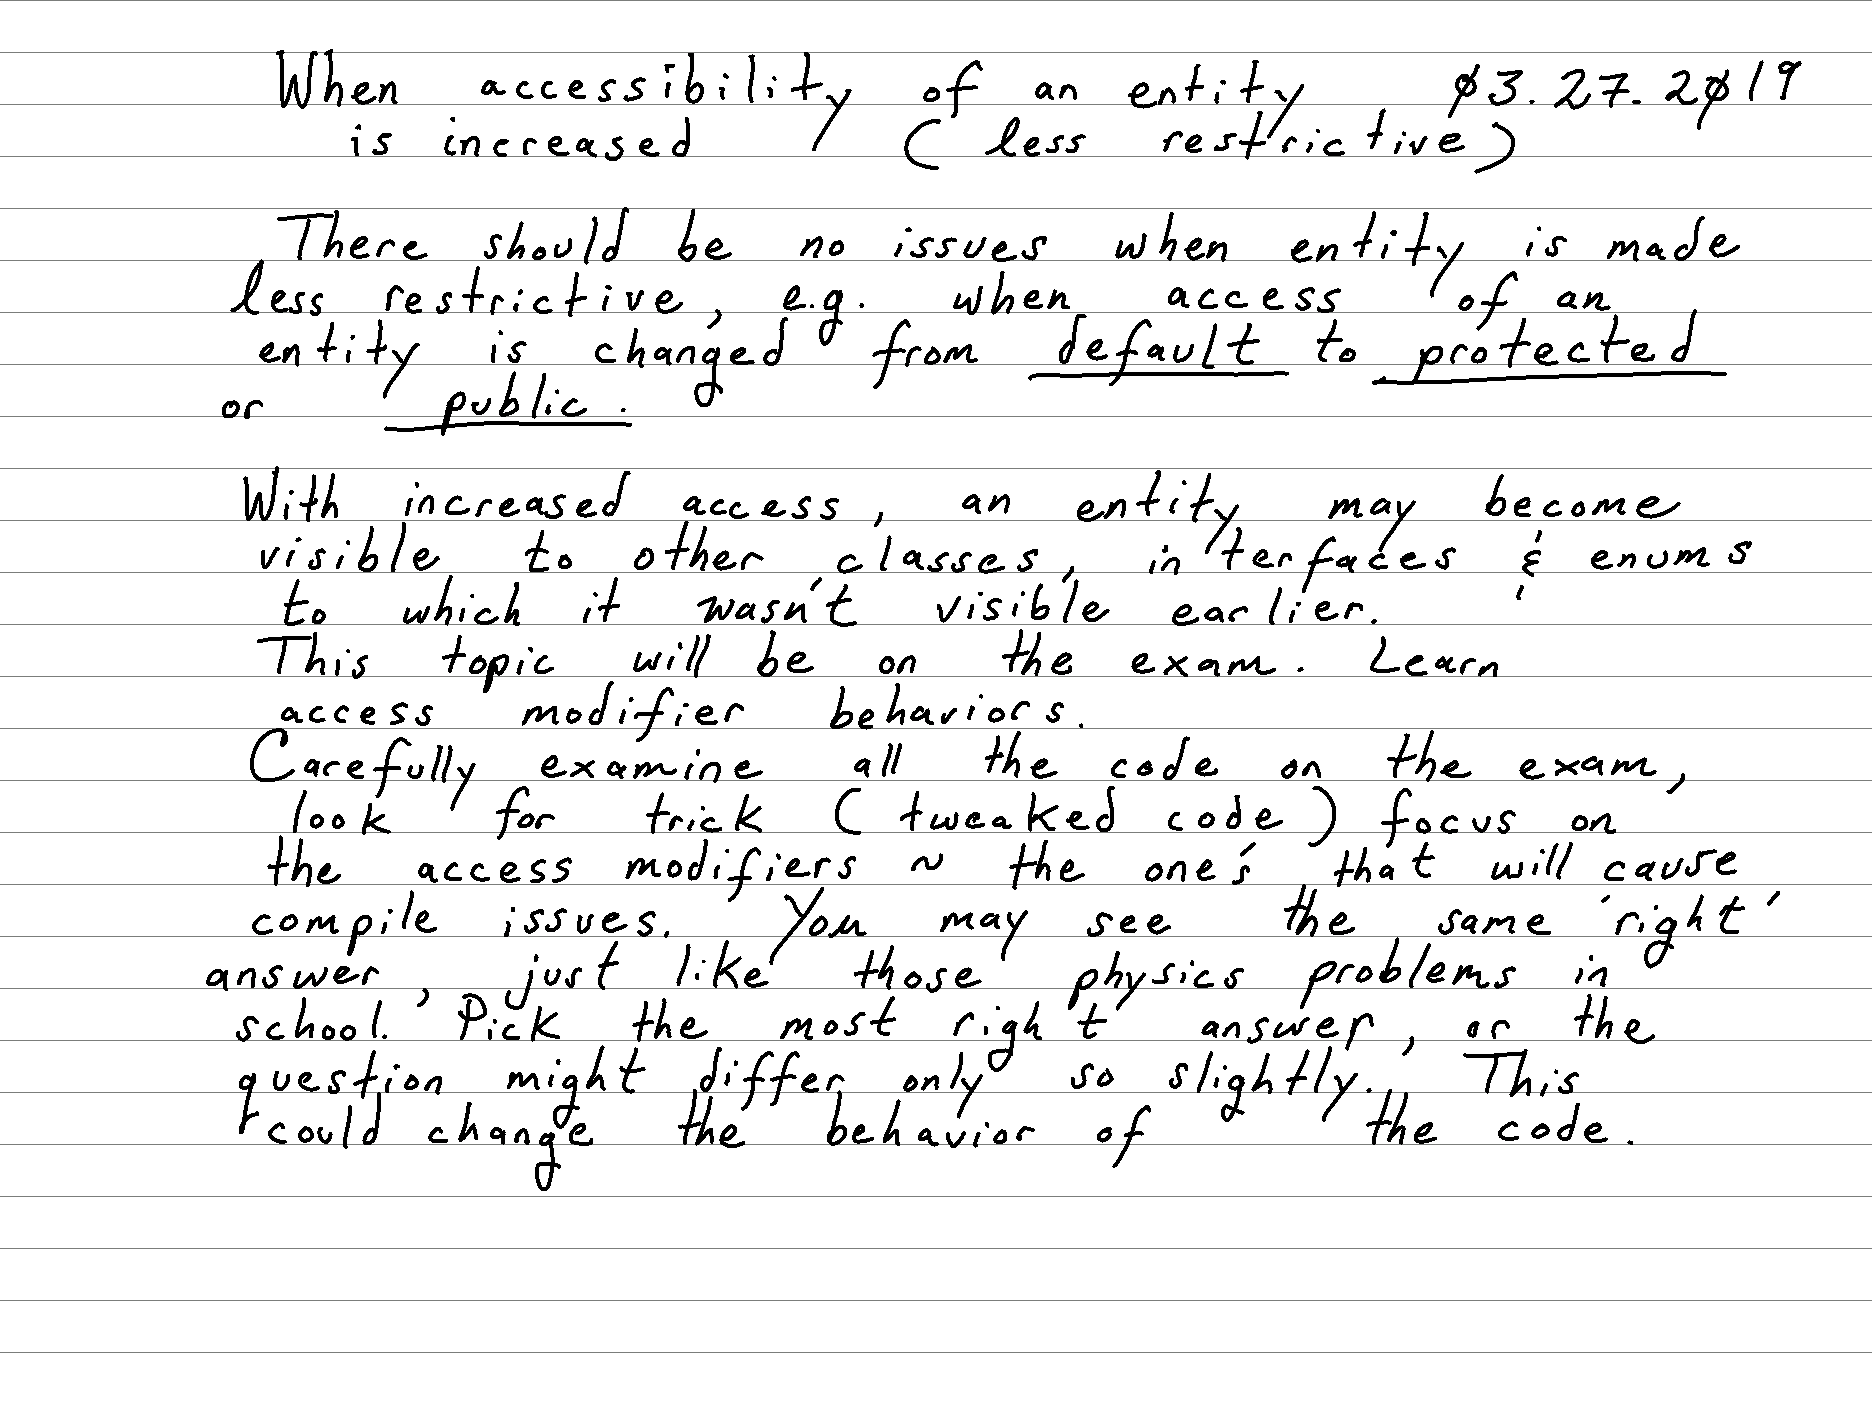 When accessibility of an entity 03.27.2019
is increased (less restrictive)
There should be no issues when entity is made
less restrictive, e.g. when access of an
entity is changed from default to protected
or public.
With increased access, an entity may become
visible to other classes, interfaces & enums
to which it wasn't visible earlier.
This topic will be on the exam. Learn
access modifier behaviors.
Carefully examine all the code on the exam,
look for trick (tweaked code) focus on
the access modifiers ~ the one's that will cause
compile issues. You may see the same 'right'
answer, just like those physics problems in
school. Pick the most right answer, or the
question might differ only so slightly. This
could change the behavior of the code.